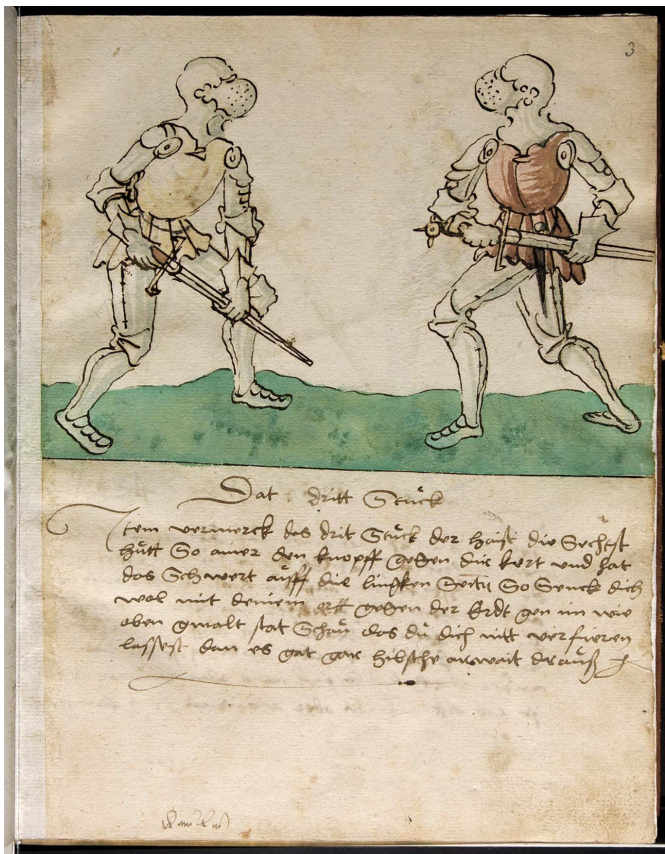 3
Dat dritt Stuck
Item vermerck das drit Stuck der haist die Sechst
hůtt So ainer den knopff gegen dir kert und hat
das Schwert auff die lincken Seitn So Senck dich
wol mit deinem ortt gegen der Erdt gen im wie
oben gmalt stat Schau das du dich nitt verfieren
lassest dan es gat gar hibsche arwait drauß